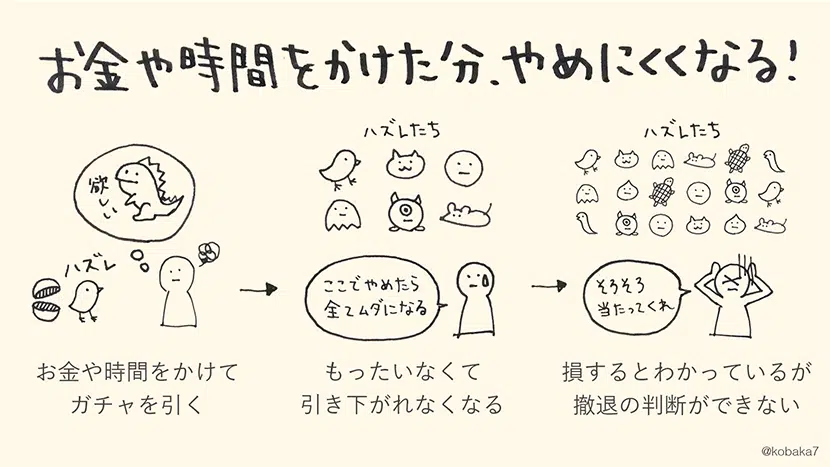 お金や時間をかけた分、やめにくくなる!
欲しい
ハズレ
お金や時間をかけて
ガチャを引く
ハズレたち
ここでやめたら
全てムダになる
もったいなくて
引き下がれなくなる
ハズレたち
そろそろ
当たってくれ
損するとわかっているが
撤退の判断ができない
@kobaka7